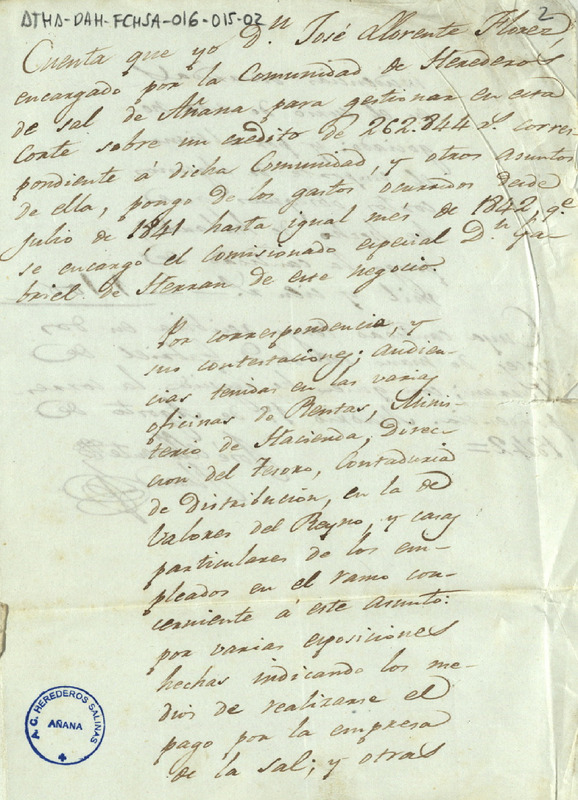 ATHA-DAH-FCHSA-016-015-02
2
Cuenta que yo Dn. José Llorente Florez,
encargado por la Comunidad de Herederos
de sal de Añana, para gestionar en esta
Corte sobre un credito de 262.844 rs. corres-
pondiente á dicha Comunidad, y otros asuntos
de ella, pongo de los gastos ocurridos desde
Julio de 1841 hasta igual més de 1842, qe.
se encargó el comisionado especial Dn. Ga-
briel de Herran de este negocio.
Por correspondencia, y
sus contestaciones; audien-
cias tenidas en las varias
oficinas de Rentas, Minis-
terio de Hacienda, Direc-
cion del Tesoro, Contaduria
de distribucion, en la de
Valores del Reyno, y casas
particulares de los em-
pleados en el ramo con-
cerniente á este asunto:
por varias exposiciones
hechas indicando los me-
dios de realizarse el
pago por la empresa
de la sal; y otras
A. C. HEREDEROS SALINAS
AÑANA